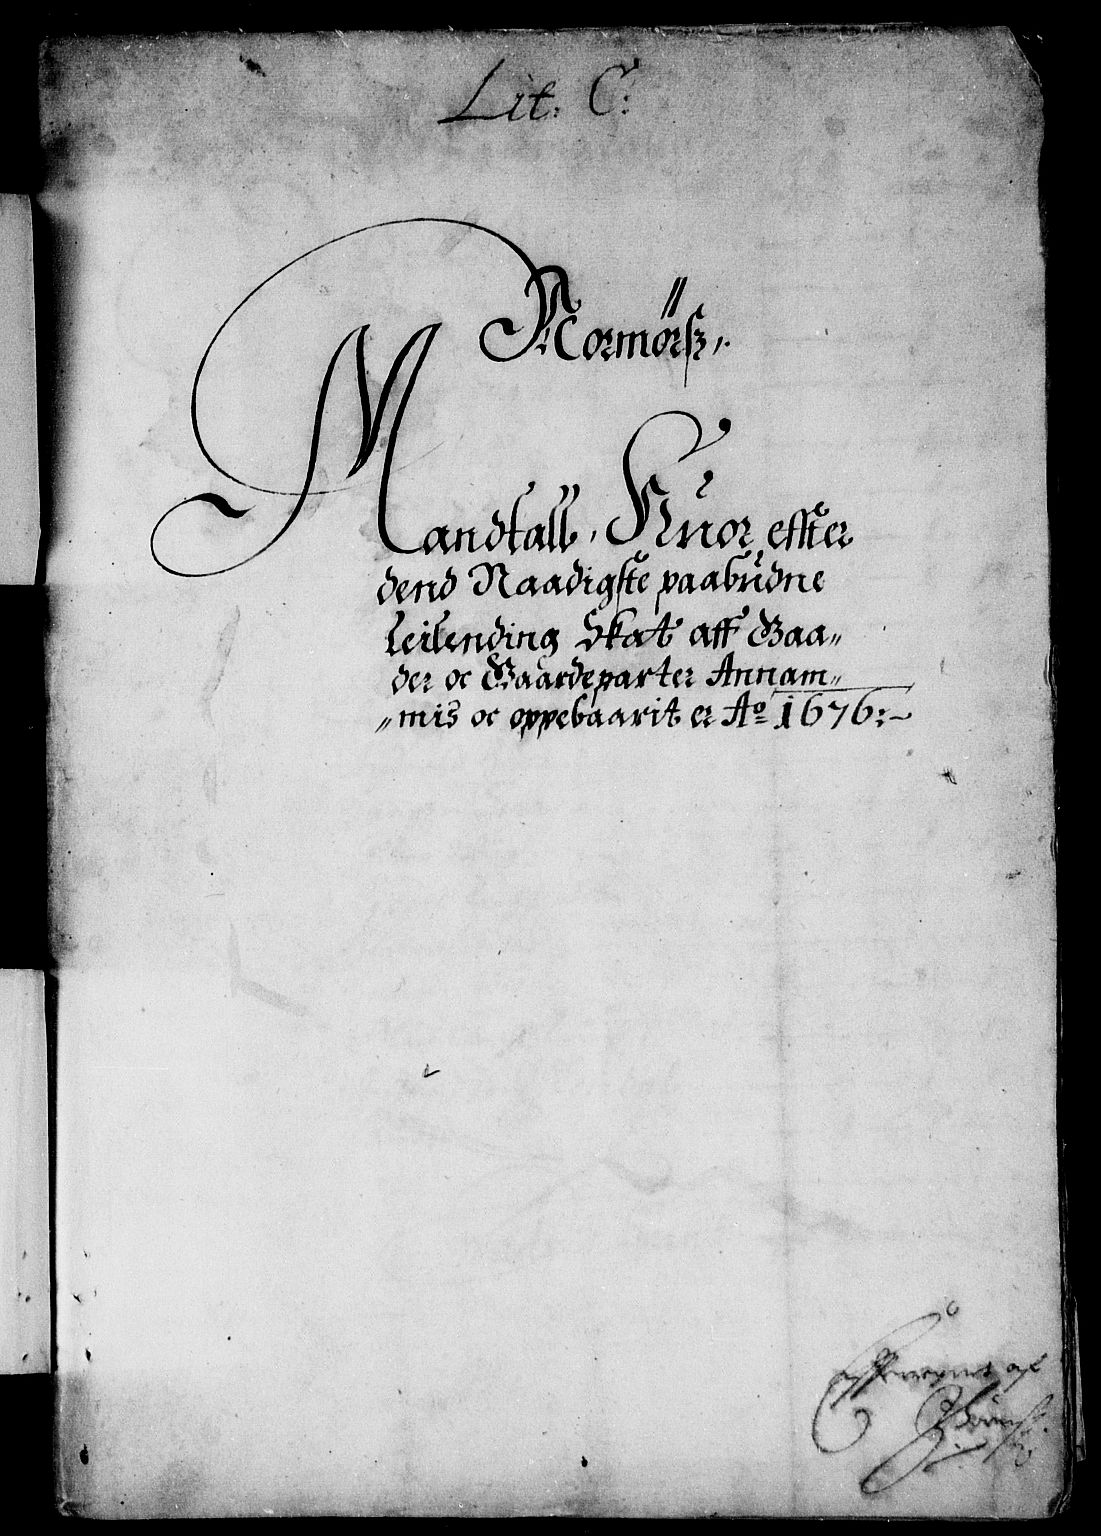 Lit: C:
Normørß,.
Mandtall, Huor effter
dend Naadigste paabudne
Leilending Skat aff Gaa„
der oc Gaardeparter Annam„
„mis oc oppebaarit er Aō 1676:~